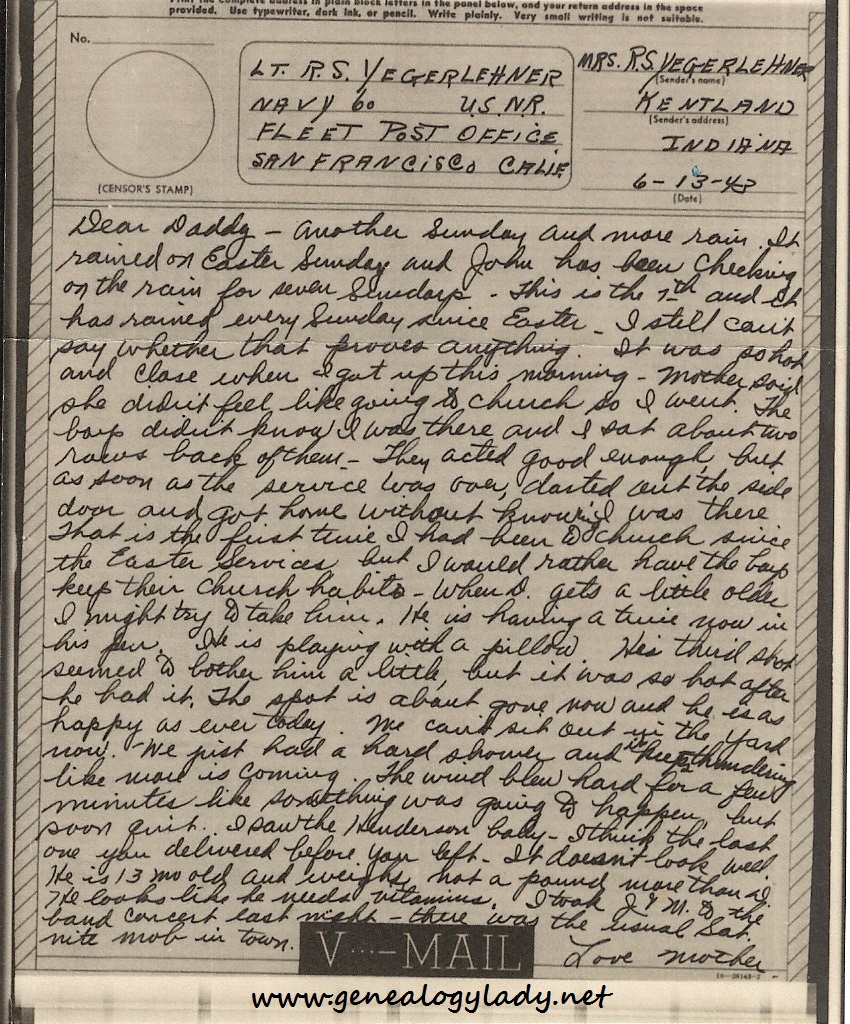 Print the complete address in plain block letters in the panel below, and your return address in the space
provided. Use typewriter, dark ink, or pencil. Write plainly. Very small writing is not suitable.
No.
(CENSOR'S STAMP)
LT. R.S. YEGERLEHNER
NAVY 60 U.S.N.R.
FLEET POST OFFICE
SAN FRANCISCO CALIF.
MRS. R.S. YEGERLEHNER
(Sender's name)
KENTLAND
(Sender's address)
INDIANA
6-13-43
(Date)
Dear Daddy - Another Sunday and more rain. It
rained on Easter Sunday and John has been checking
on the rain for seven Sundays - This is the 7th and it
has rained every Sunday since Easter - I still can't
say whether that proves anything. It was so hot
and close when I got up this morning - Mother said
she didn't feel like going to church so I went. The
boys didn't know I was there and I sat about two
rows back of them - They acted good enough, but
as soon as the service was over, darted out the side
door and got home without knowing I was there
That is the first time I had been to church since
the Easter Services, but I would rather have the boys
keep their church habits - When D. gets a little older
I might try to take him. He is having a time now in
his pen. He is playing with a pillow. His third shot
seemed to bother him a little, but it was so hot after
he had it. The spot is about gone now and he is as
happy as ever today. We can't sit out in the yard
now. We just had a hard shower and it keeps thundering
like more is coming. The wind blew hard for a few
minutes like something was going to happen, but
soon quit. I saw the Henderson baby - I think the last
one you delivered before you left - It doesn't look well.
He is 13 mo old and weighs not a pound more than D.
He looks like he needs vitamins. I took J & M. to the
band concert last night - there was the usual Sat.
nite mob in town.
Love Mother
V···-MAIL
16-28143-2
www.genealogylady.net